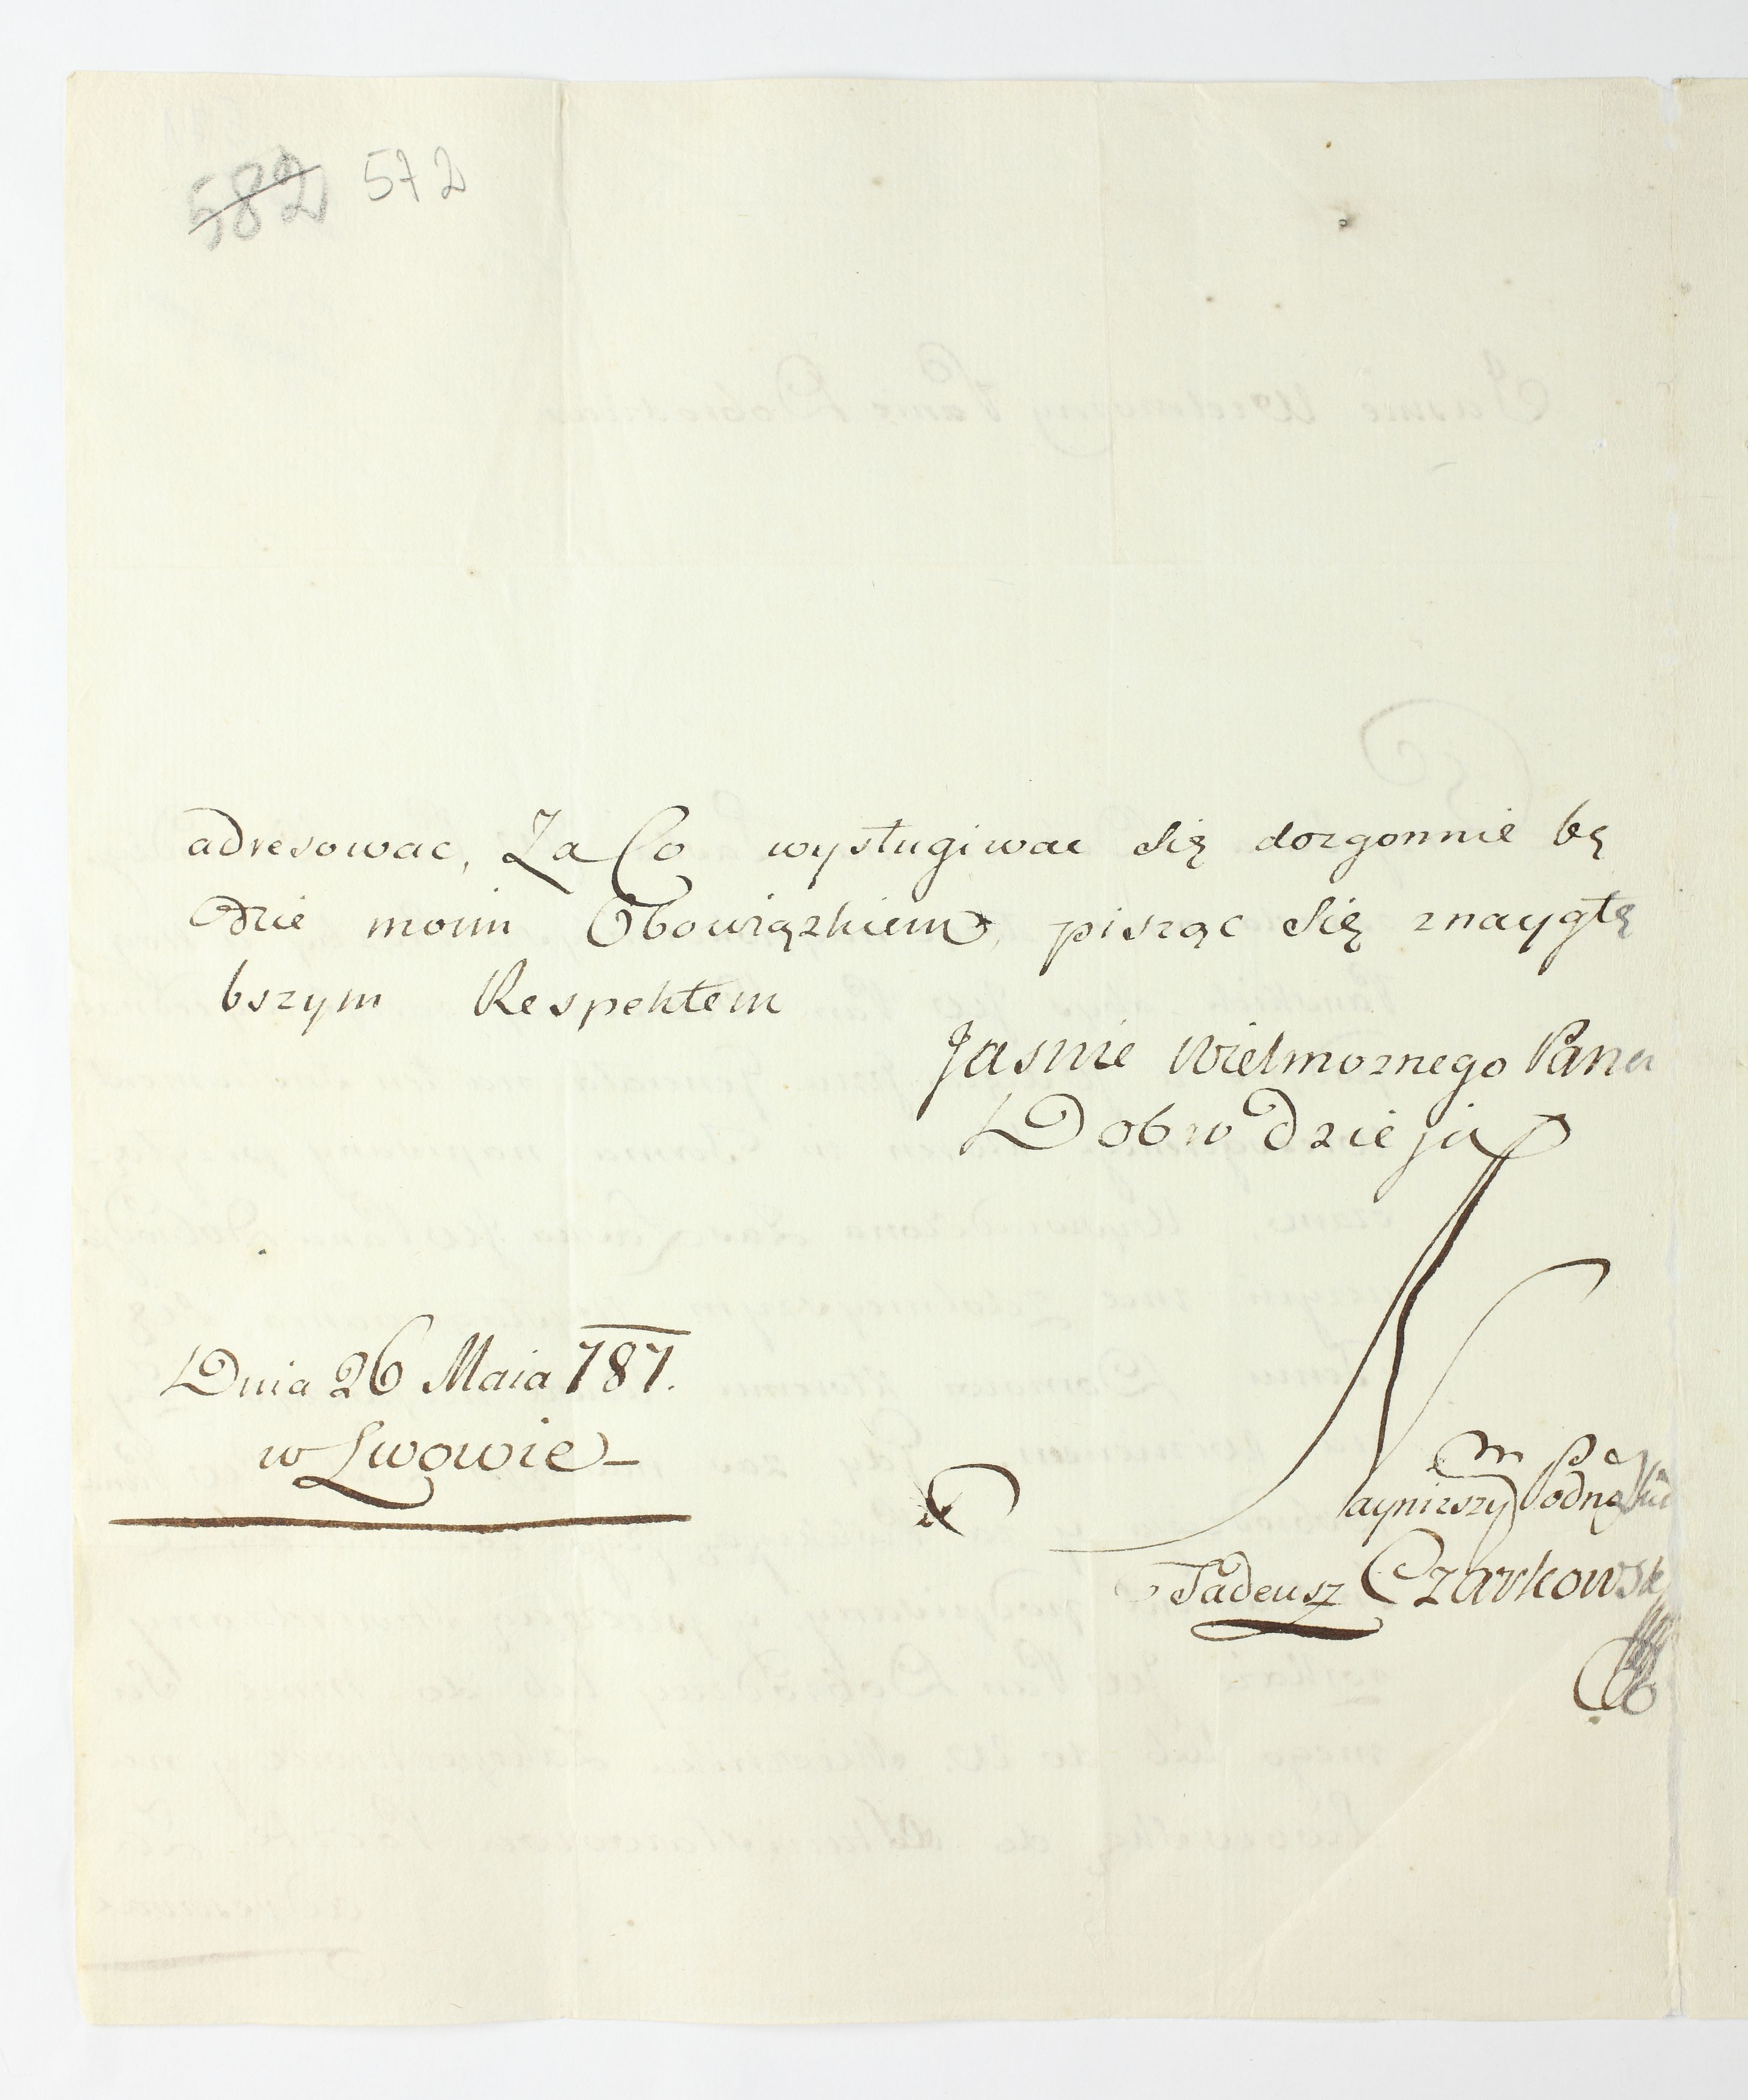 582 572
adresowac, Za Co wysługiwac Się dozgonnie bę
dzie moim Obowiązkiem, pisząc Się znaygłę
bszym Respektem
Jasnie Wielmoznego Pana
Dobrodzieja
Dnia 26 Maia 787.
w Lwowie
Nayniższy
Tadeusz Czarkowski